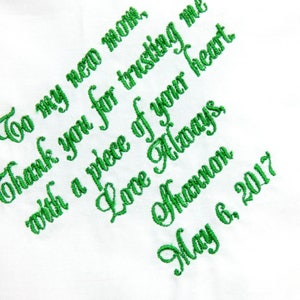 To my new mom,
Thank you for trusting me
with a piece of your heart.
Love Always,
Shannon
May 6, 2017